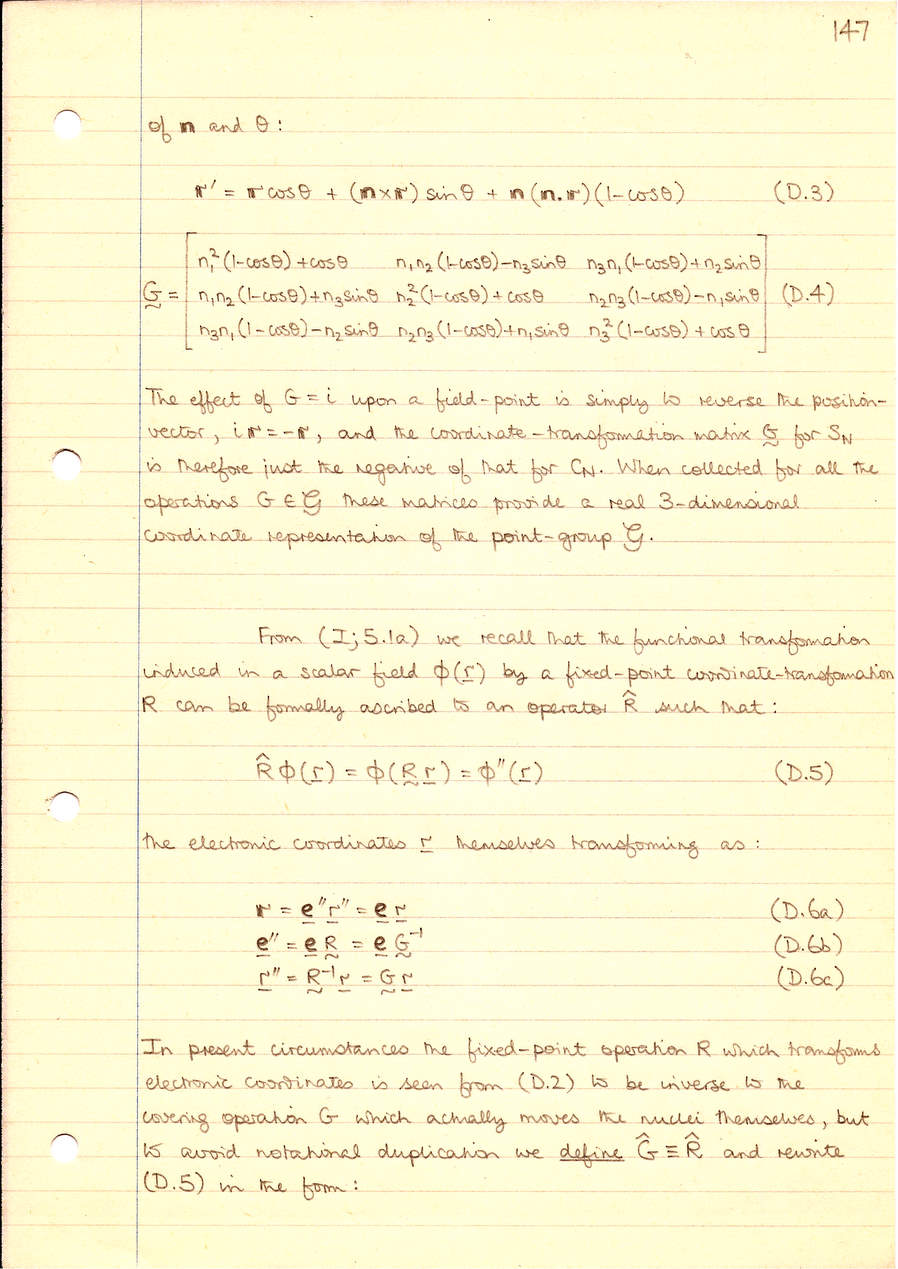 147
of n and θ:
r' = r cosθ + (n×r) sinθ + n(n.r)(1-cosθ) (D.3)
n₁²(1-cosθ)+cosθ n₁n₂(1-cosθ)-n₃sinθ n₃n₁(1-cosθ)+n₂sinθ
G = n₁n₂(1-cosθ)+n₃sinθ n₂²(1-cosθ)+cosθ n₂n₃(1-cosθ)-n₁sinθ (D.4)
n₃n₁(1-cosθ)-n₂sinθ n₂n₃(1-cosθ)+n₁sinθ n₃²(1-cosθ)+cosθ
The effect of G = i upon a field-point is simply to reverse the position-
vector, i r = -r, and the coordinate-transformation matrix G for S_N
is therefore just the negative of that for C_N. When collected for all the
operations G ∈ 𝒢 these matrices provide a real 3-dimensional
coordinate representation of the point-group 𝒢.
From (I; 5.1a) we recall that the functional transformation
induced in a scalar field ϕ(r) by a fixed-point coordinate-transformation
R can be formally ascribed to an operator R̂ such that:
R̂ϕ(r) = ϕ(R r) = ϕ''(r) (D.5)
the electronic coordinates r themselves transforming as:
r = e''r'' = e r (D.6a)
e'' = e R = e G⁻¹ (D.6b)
r'' = R⁻¹r = G r (D.6c)
In present circumstances the fixed-point operation R which transforms
electronic coordinates is seen from (D.2) to be inverse to the
covering operation G which actually moves the nuclei themselves, but
to avoid notational duplication we define Ĝ ≡ R̂ and rewrite
(D.5) in the form: